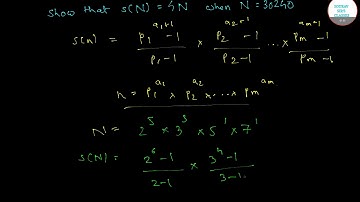 show that s(N) = 4N when N = 30240
s(n) = p₁^(a₁+1) - 1 / p₁ - 1 × p₂^(a₂+1) - 1 / p₂ - 1 ... × pₘ^(aₘ+1) - 1 / pₘ - 1
n = p₁^a₁ × p₂^a₂ × ... × pₘ^aₘ
N = 2^5 × 3^3 × 5^1 × 7^1
s(N) = 2^6 - 1 / 2 - 1 × 3^4 - 1 / 3 - 1